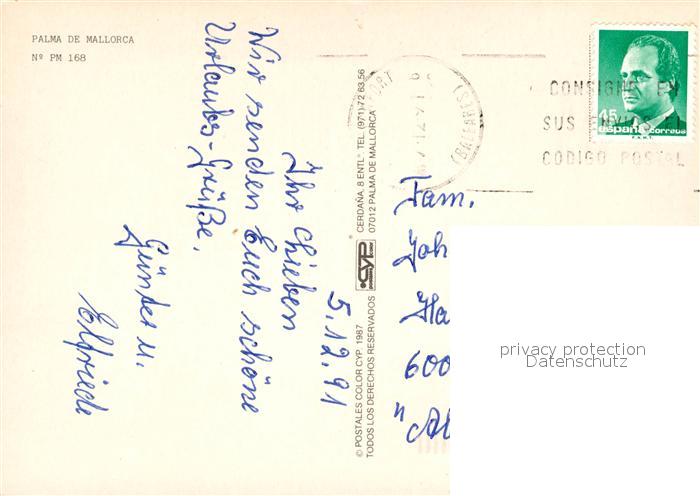 PALMA DE MALLORCA
Nº PM 168
5.12.91
Ihr Lieben
Wir senden Euch schöne
Urlaubs-Grüße.
Günter u.
Elfriede
© POSTALES COLOR CYP, 1987
TODOS LOS DERECHOS RESERVADOS
CYP
CERDAÑA, 8 ENTLº TEL. (971) 72 63 56
07012 PALMA DE MALLORCA
(BALEARES)
CONSIGNE EN
SUS ENVIOS EL
CODIGO POSTAL
45
españa correos
F.N.M.T.
Fam.
Joh
Ha
600
privacy protection
Datenschutz